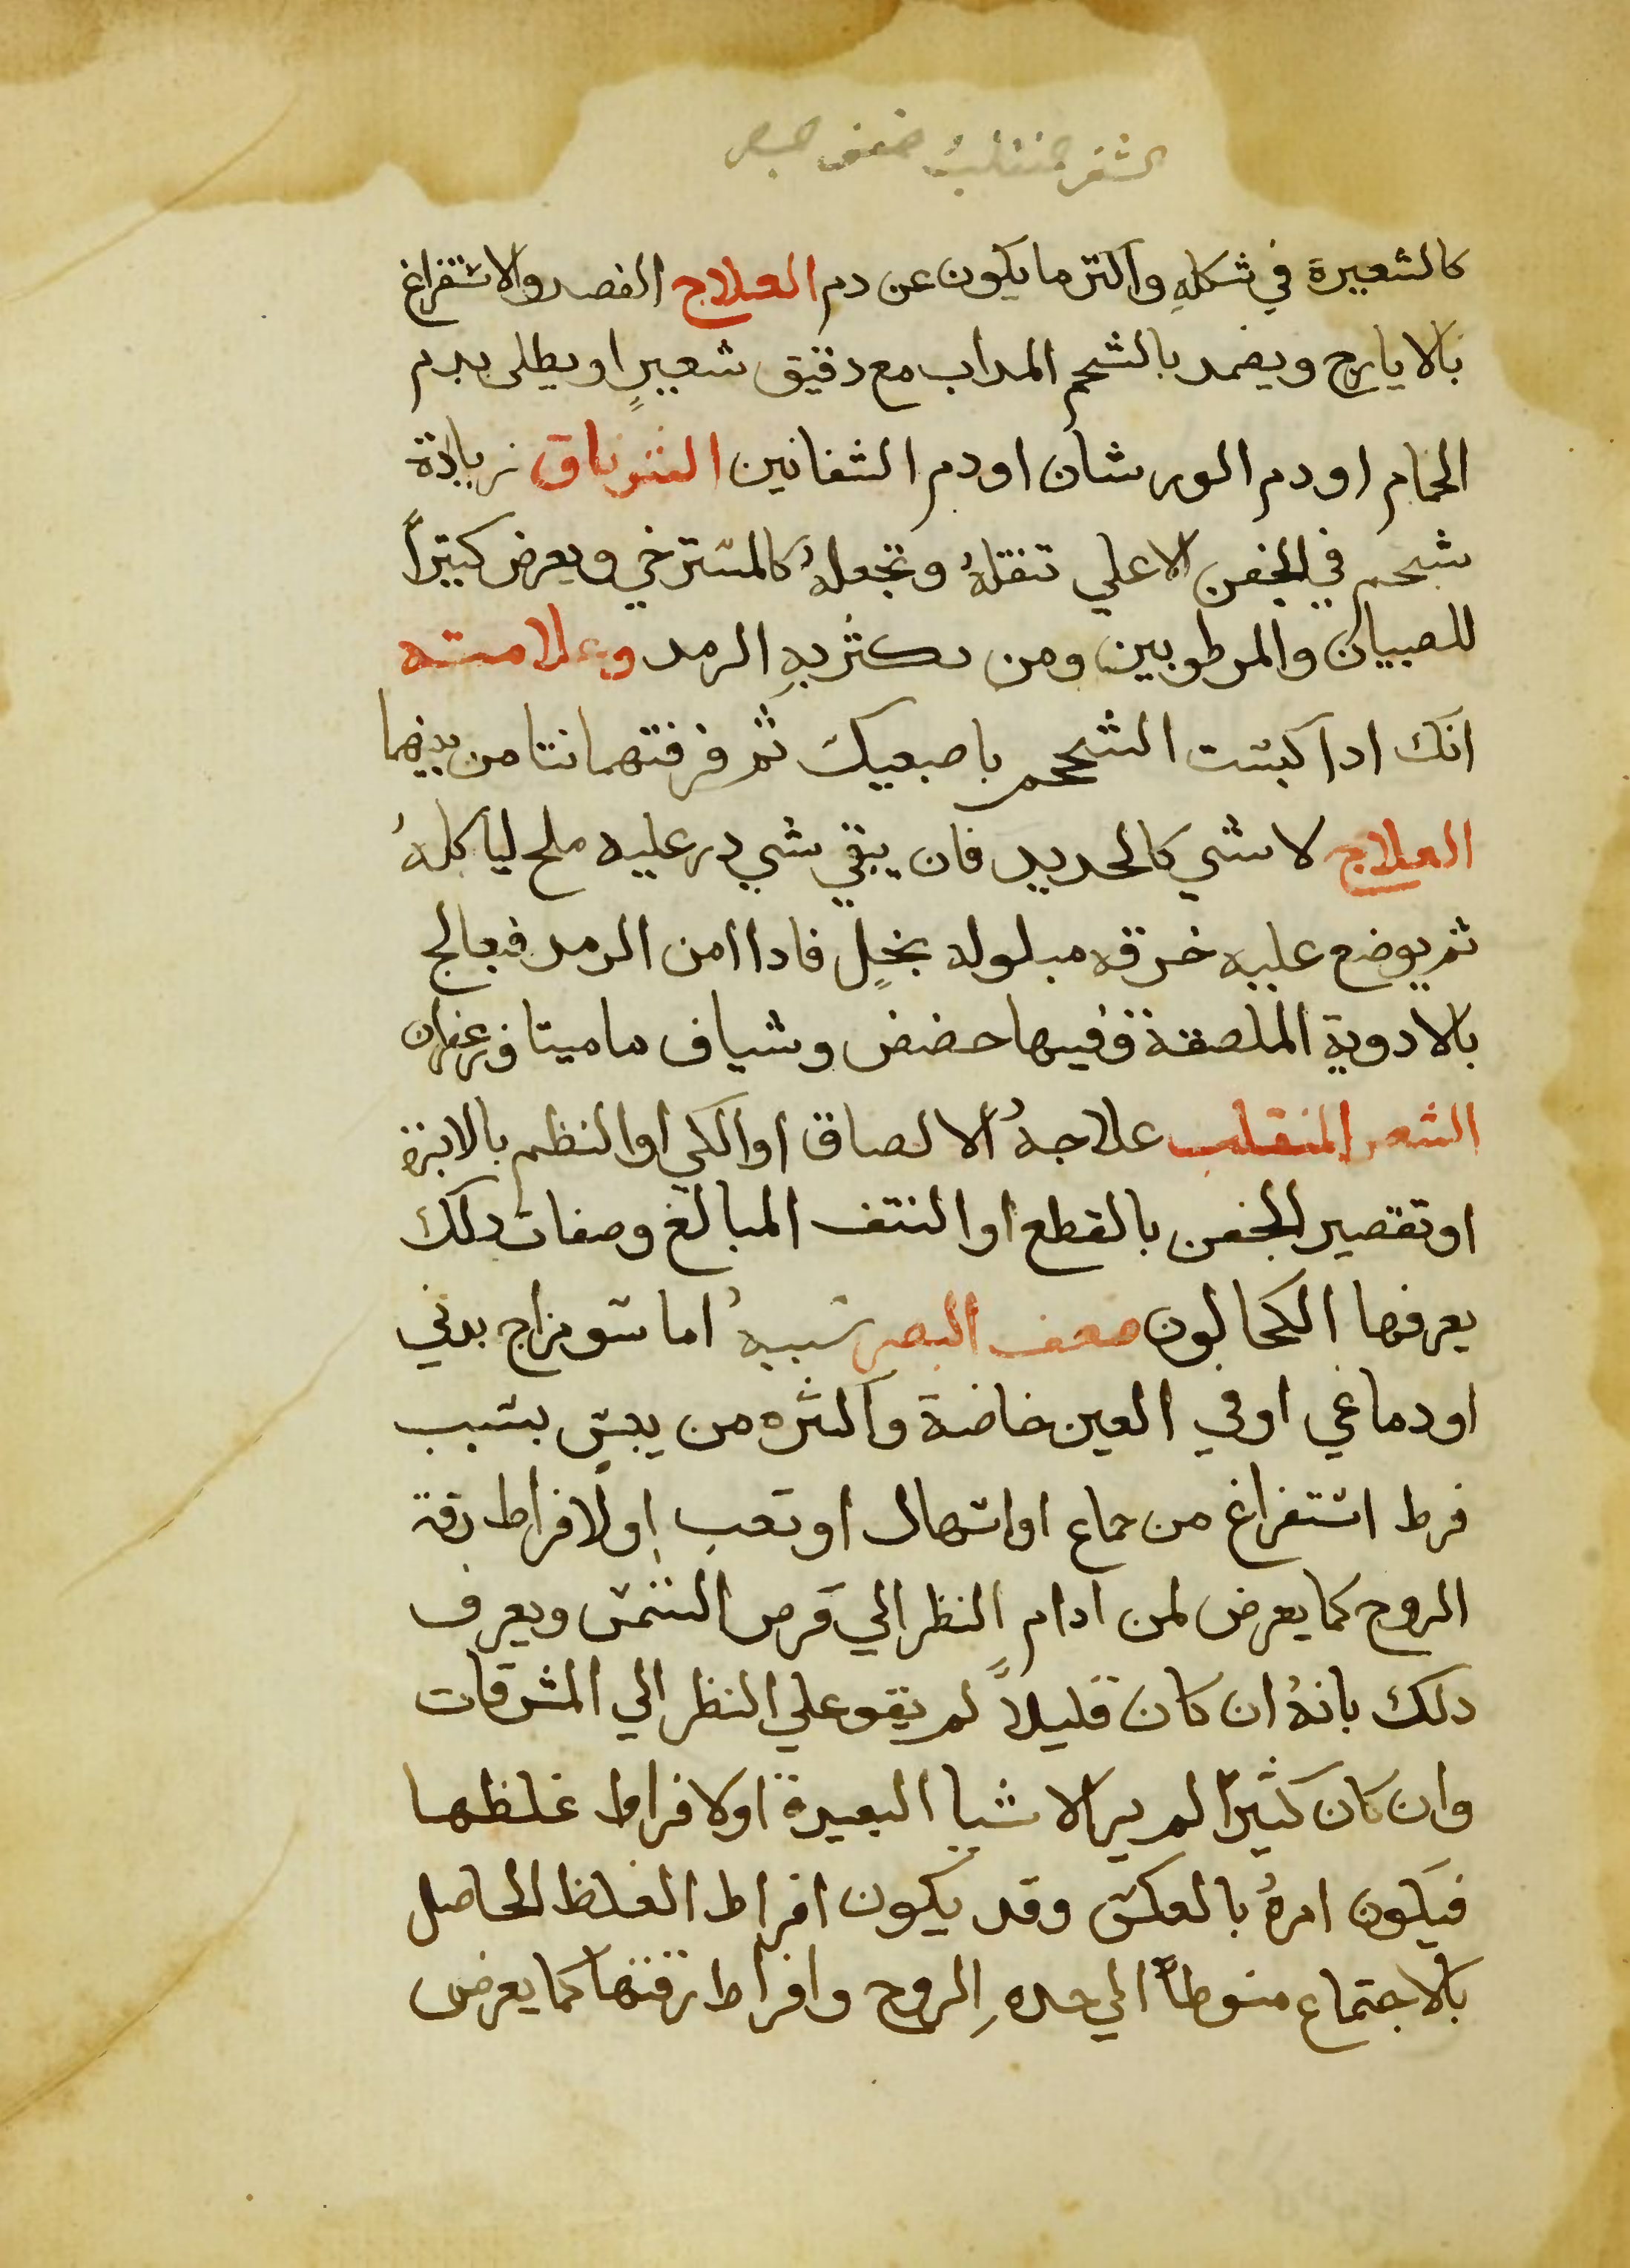 الشعر المنقلب ضعف البصر
كالشعيرة في شكلهِ واكثر ما يكون عن دم العلاج الفصد والاستفراغ
بالايارج ويضمد بالشحم المداب مع دقيق شعيرٍ او يطلى بدم
الحمام او دم الورشان او دم الشفانين الشرناق زيادة
شحم في الجفن الاعلي تثقلهُ وتجعلهُ كالمسترخي ويعرض كثيراً
للصبيان والمرطوبين ومن يكثر بهِ الرمد وعلامته
انك ادا كبست الشحم باصبعيك ثم فرقتهما نتا من بينهما
العلاج لا شي كالحديد فان يبقي شي در عليه ملح لياكلهُ
ثم يوضع عليه خرقه مبلوله بخلٍ فادا امن الرمد فيعالج
بالادوية الملصقة وفيها حضض وشياف ماميتا وزعفران
الشعر المنقلب علاجهُ الالصاق او الكي او النظم بالابرة
او تقصير الجفن بالقطع او النتف المبالغ وصفات دلك
يعرفها الكحالون ضعف البصر سببهُ اما سو مزاج بدني
او دماغي او في العين خاصة واكثره من يبس بسبب
فرط استفراغ من جماع او اسهال او تعب او لافراط رقة
الروح كما يعرض لمن ادام النظر الي قرص الشمس ويعرف
دلك بانهُ ان كان قليلاً لم يقو علي النظر الي المشرقات
وان كان كثيراً لم ير الاشيا البعيدة او لافراط غلظها
فيكون امرهُ بالعكس وقد يكون افراط الغلظ الحاصل
بالاجتماع منوطاً الي حده الروح وافراط رقتها كما يعرض